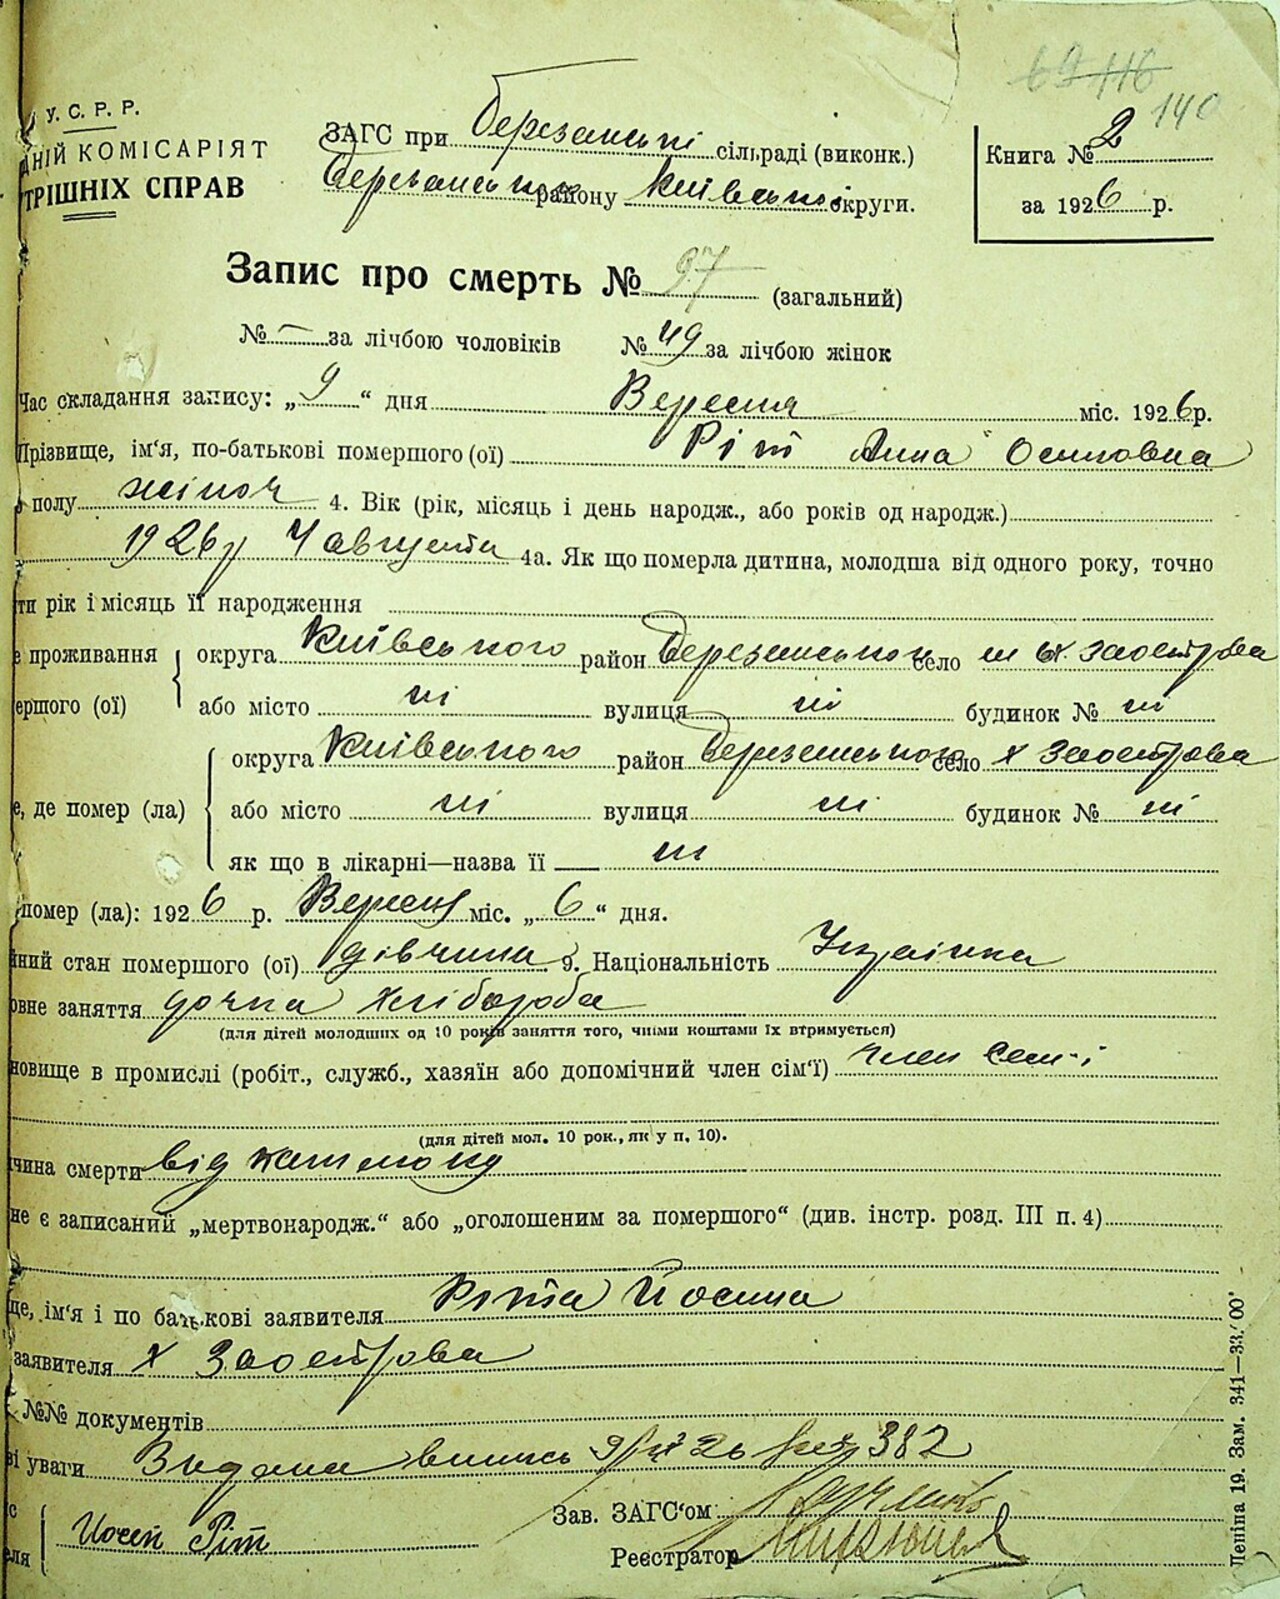 69 116
140
У. С. Р. Р.
НІЙ КОМІСАРІЯТ
ТРІШНІХ СПРАВ
ЗАГС при Березанські сільраді (виконк.)
Березанського району Київського округи.
Книга № 2
за 1926 р.
Запис про смерть № 97 (загальний)
№ — за лічбою чоловіків № 49 за лічбою жінок
Час складання запису: „9“ дня Вересня міс. 1926 р.
Прізвище, ім'я, по-батькові помершого (ої) Ріт Анна Осиповна
полу жіноч 4. Вік (рік, місяць і день народж., або років од народж.)
1926 р 4 августа 4а. Як що померла дитина, молодша від одного року, точно
ти рік і місяць її народження
е проживання округа Київського район Березанського село х. Заострова
ершого (ої) або місто ні вулиця ні будинок № ні
округа Київського район Березанського село х Заострова
е, де помер (ла) або місто ні вулиця ні будинок № ні
як що в лікарні—назва її ні
помер (ла): 1926 р. Вересня міс. „6“ дня.
йний стан помершого (ої) дівчина 9. Національність Українка
овне заняття дочка хлібороба
(для дітей молодших од 10 років заняття того, чиїми коштами їх втримується)
новище в промислі (робіт., служб., хазяїн або допомічний член сім'ї) член сем'ї
(для дітей мол. 10 рок., як у п. 10).
чина смерти від
не є записаний „мертвонародж.“ або „оголошеним за помершого“ (див. інстр. розд. III п. 4)
ще, ім'я і по батькові заявителя Ріта Йосипа
заявителя х Заострова
№№ документів
ві уваги Видана випись 9/IX 26 382
с
еля Йосип Ріт
Зав. ЗАГС'ом
Реєстратор
Леніна 19. Зам. 341—33.'00'